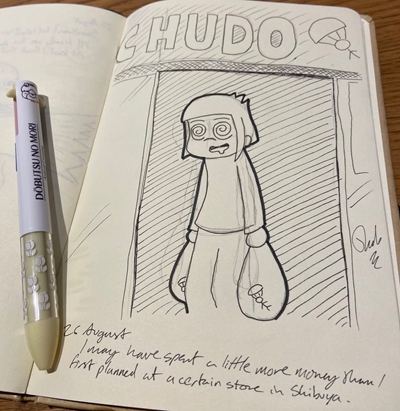 CHUDO
DŌBUTSU NO MORI
26 August
I may have spent a little more money than I
first planned at a certain store in Shibuya.